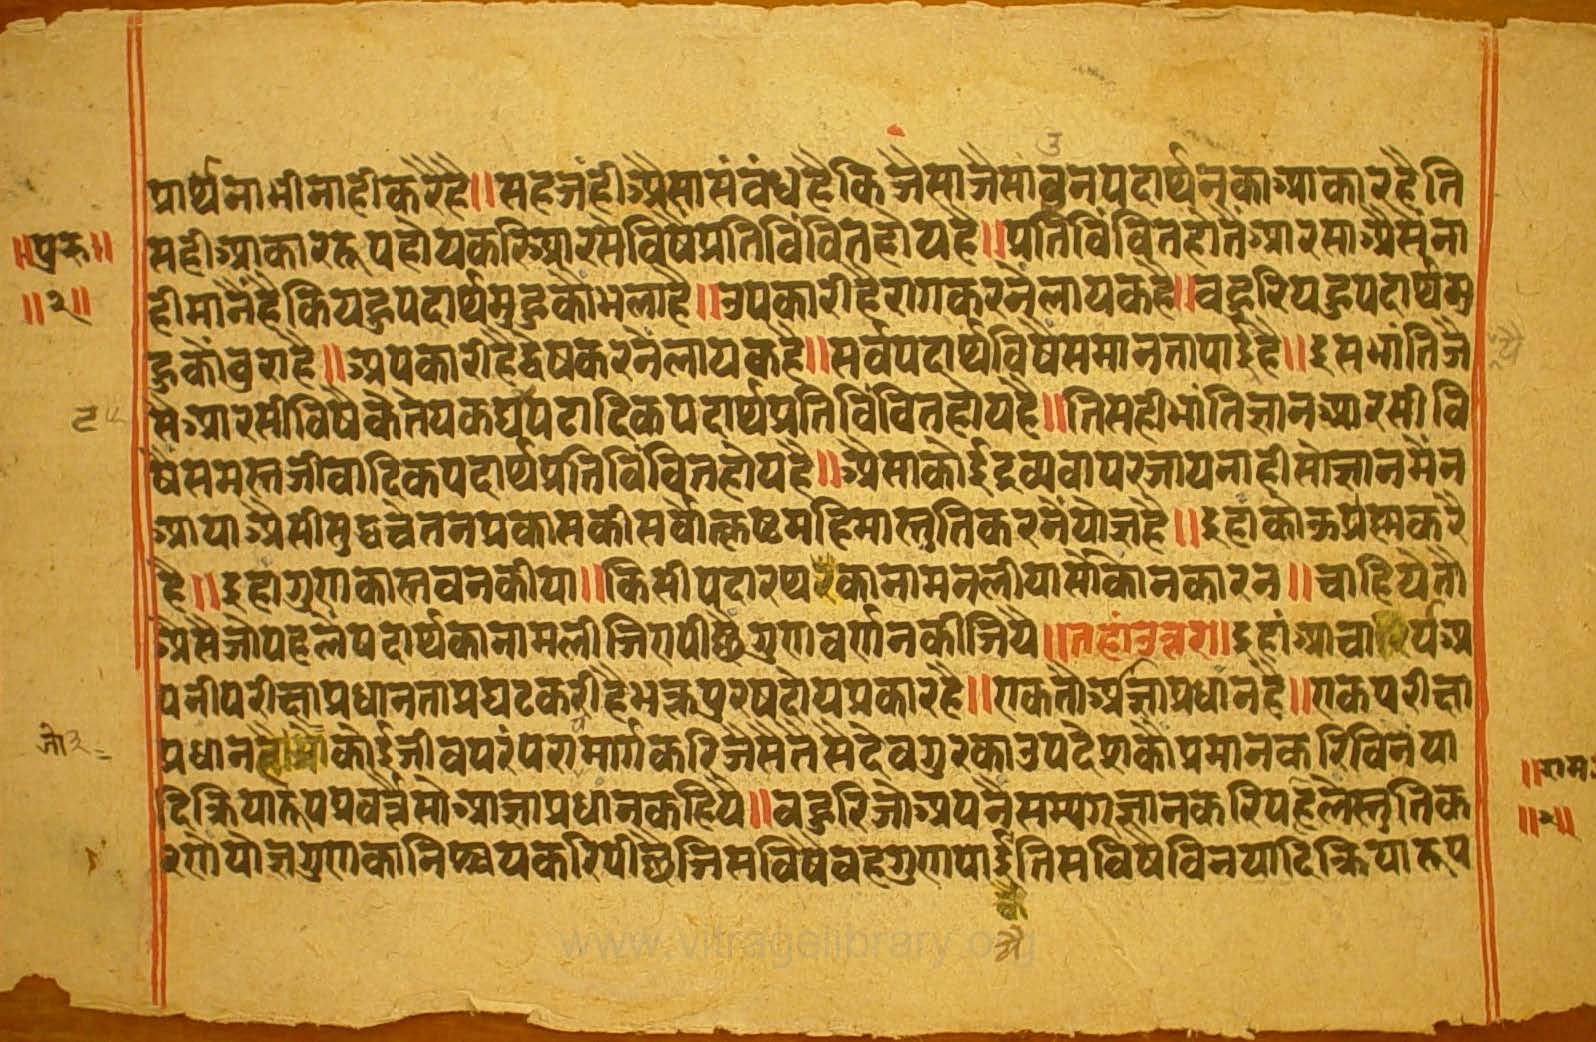 प्रार्थनाभीनाहीकरैहै॥सहजंहीअैसासंवंधहैकिजैसाजैसावुनपदार्थनकाआकारहैति
॥प्रह॥
सहीआकाररूपहोयकरिआरसेविषैप्रतिविंवितहोयहै॥प्रतिविंवितहोतैंआरसाअैसैंना
॥२॥
हीमानैंहैकियहुपदार्थमुहुकौंभलाहै॥उपकारीहैरागकरनैंलायकहै॥वहुरियहुपदार्थमु
हुकौंवुराहै॥अपकारीहैद्वेषकरनैंलायकहै॥सर्वपदार्थविषैंसमानतापाईहै॥इसभांतिजै
सेआरसीविषैकेतेयकघटपटादिकपदार्थप्रतिविंवितहोयहै॥तिसहीभांतिज्ञानआरसीवि
षैंसमस्तजीवादिकपदार्थप्रतिविंवितहोयहै॥अैसाकोईद्रव्यवापरजायनाहीसोज्ञानमैंन
आयाअैसीसुद्धचैतनप्रकासकीसर्वोत्कृष्टमहिमास्तुतिकरनैंयोज्ञहै॥इहांकोऊप्रश्नकरै
है॥इहांगुणकास्तवनकीया॥किसीपदारथकानामनलीयासौकौनकारन॥चाहियेतौ
अैसैजोपहलेपदार्थकानामलीजिएपीछैगुणवर्णनकीजियै॥तहांउत्तर॥इहांआचार्यअ
पनीपरीक्षाप्रधानताप्रघटकरीहैभक्तपुरषदोयप्रकारहै॥एकतौअज्ञाप्रधानहै॥एकपरीक्षा
प्रधानकोईजीवपरंपरामार्गकरिजैसैतैसैदेवगुरकाउपदेशकौंप्रमानकरिविनंया
दिक्रियारूपप्रवर्त्तैसोआज्ञाप्रधानकहियै॥वहुरिजोअपनैंसम्यग्ज्ञानकरिपहलेस्तुतिक
रणेयोज्ञगुणकानिश्चयकरिपीछैजिसविषैवहगुणपाईतिसविषैविनयादिक्रियारूप
॥राम॥
॥२॥
www.vitragelibrary.org